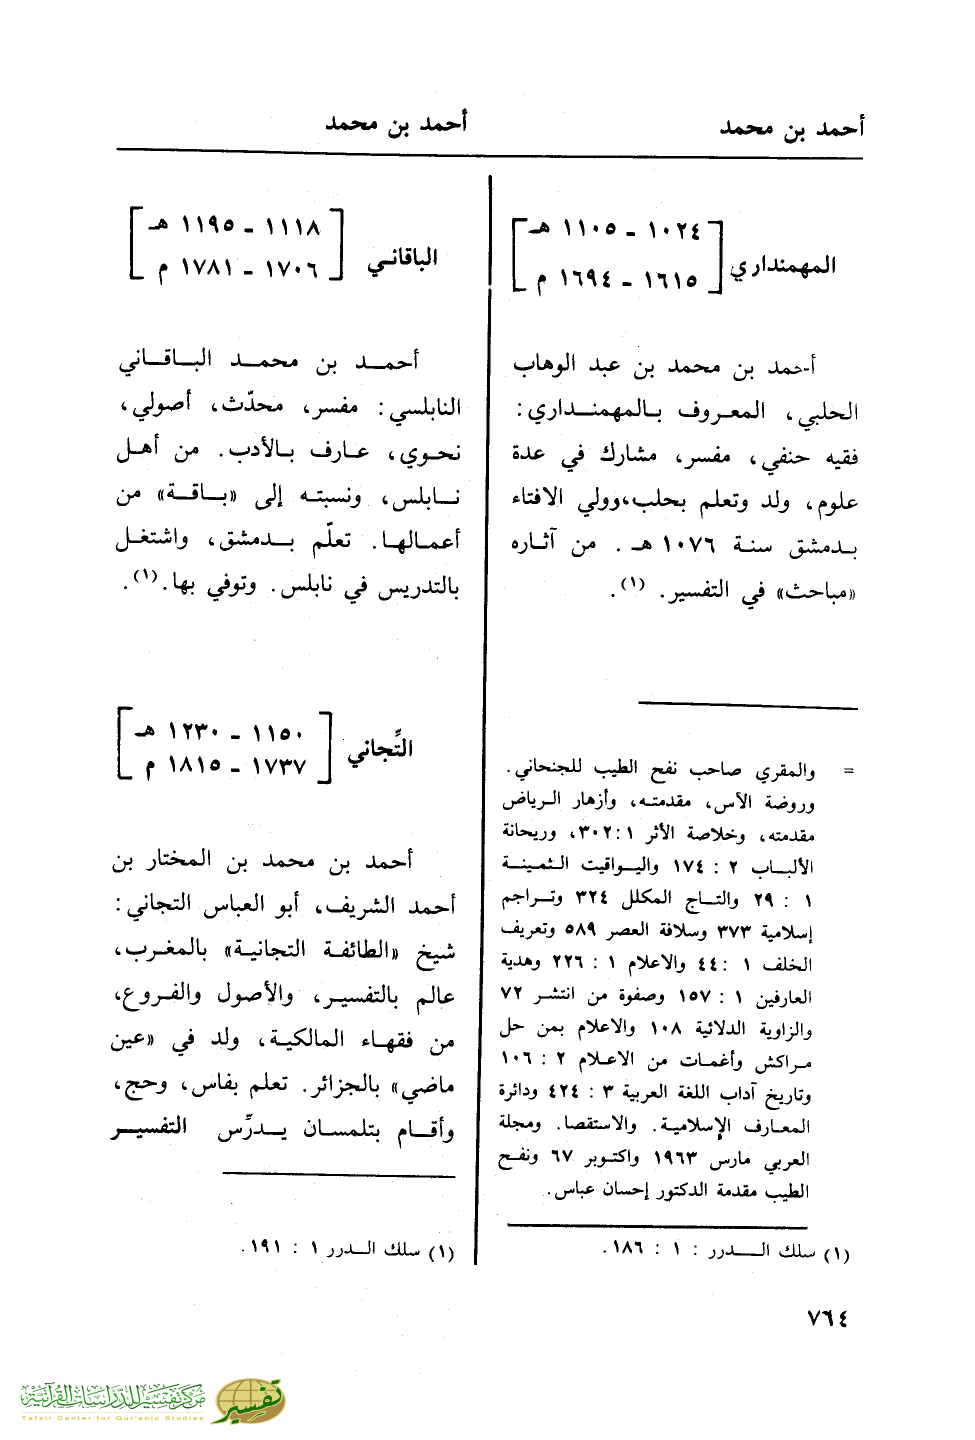 أحمد بن محمد
أحمد بن محمد
المهمنداري
١٠٢٤ - ١١٠٥ هـ
١٦١٥ - ١٦٩٤ م
أحمد بن محمد بن عبد الوهاب
الحلبي، المعروف بالمهمنداري:
فقيه حنفي، مفسر، مشارك في عدة
علوم، ولد وتعلم بحلب،وولي الافتاء
بدمشق سنة ١٠٧٦ هـ. من آثاره
«مباحث» في التفسير. (١).
= والمقري صاحب نفح الطيب للجنحاني.
وروضة الآس، مقدمته، وأزهار الرياض
مقدمته، وخلاصة الأثر ١ :٣٠٢، وريحانة
الألباب ٢ : ١٧٤ واليواقيت الثمينة
١ : ٢٩ والتاج المكلل ٣٢٤ وتراجم
إسلامية ٣٧٣ وسلافة العصر ٥٨٩ وتعريف
الخلف ١ :٤٤ والاعلام ١ : ٢٢٦ وهدية
العارفين ١ : ١٥٧ وصفوة من انتشر ٧٢
والزاوية الدلائية ١٠٨ والاعلام بمن حل
مراكش وأغمات من الاعلام ٢ : ١٠٦
وتاريخ آداب اللغة العربية ٣ : ٤٢٤ ودائرة
المعارف الإسلامية. والاستقصا. ومجلة
العربي مارس ١٩٦٣ واكتوبر ٦٧ ونفح
الطيب مقدمة الدكتور إحسان عباس.
(١) سلك الدرر : ١ : ١٨٦.
الباقاني
١١١٨ - ١١٩٥ هـ
١٧٠٦ - ١٧٨١ م
أحمد بن محمد الباقاني
النابلسي: مفسر، محدّث، أصولي،
نحوي، عارف بالأدب. من أهل
نابلس، ونسبته إلى «باقة» من
أعمالها. تعلّم بدمشق، واشتغل
بالتدريس في نابلس. وتوفي بها.(١).
التِّجاني
١١٥٠ - ١٢٣٠ هـ
١٧٣٧ - ١٨١٥ م
أحمد بن محمد بن المختار بن
أحمد الشريف، أبو العباس التجاني:
شيخ «الطائفة التجانية» بالمغرب،
عالم بالتفسير، والأصول والفروع،
من فقهاء المالكية، ولد في «عين
ماضي» بالجزائر. تعلم بفاس، وحج،
وأقام بتلمسان يدرِّس التفسير
(١) سلك الدرر ١ : ١٩١.
٧٦٤
مركز تفسير للدراسات القرآنية
Tafsir Center for Qur'anic Studies
تفسير